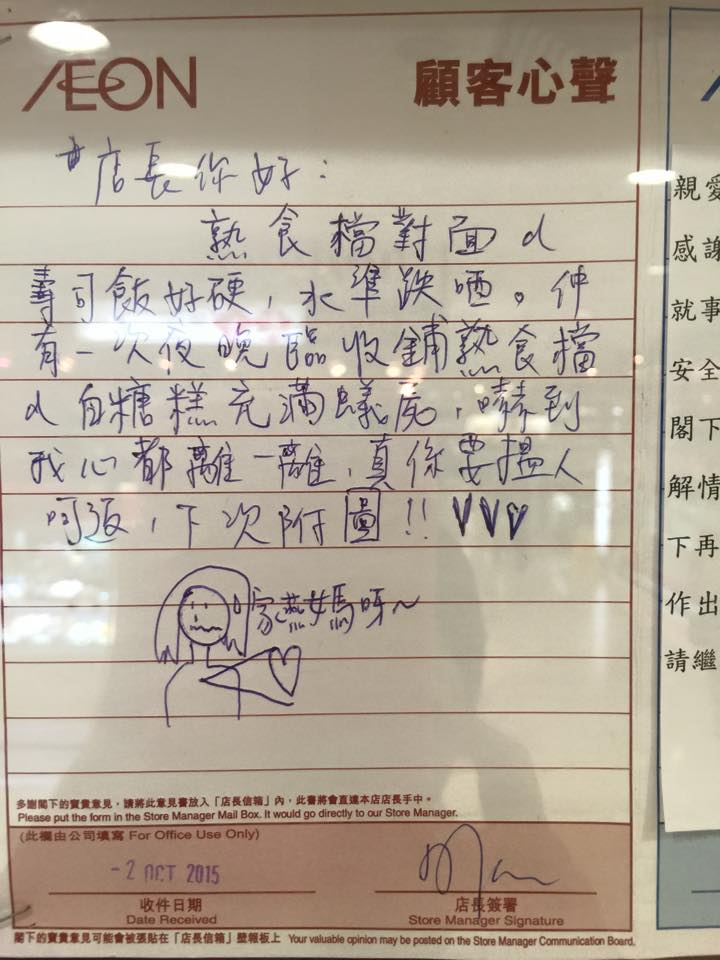 AEON
顧客心聲
店長你好：
熟食檔對面d
壽司飯好硬，水準跌哂。仲
有一次夜晚臨收舖熟食檔
d白糖糕充滿蟻屍，嚇到
我心都離一離，真係要搵人
呵返，下次附圖!!
家燕媽媽呀~
多謝閣下的寶貴意見，請將此意見書放入「店長信箱」內，此書將會直達本店店長手中。
Please put the form in the Store Manager Mail Box. It would go directly to our Store Manager.
(此欄由公司填寫 For Office Use Only)
-2 OCT 2015
收件日期
Date Received
店長簽署
Store Manager Signature
閣下的寶貴意見可能會被張貼在「店長信箱」壁報板上 Your valuable opinion may be posted on the Store Manager Communication Board.
親愛
感謝
就事
安全
閣下
解情
下再
作出
請繼